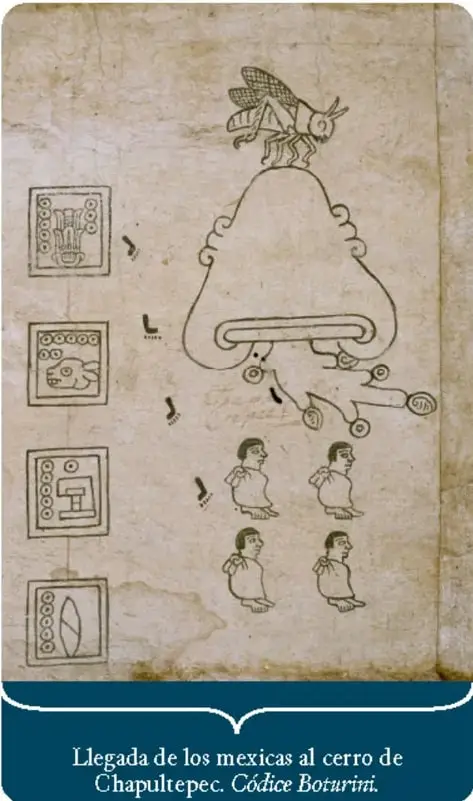 Llegada de los mexicas al cerro de
Chapultepec. Códice Boturini.